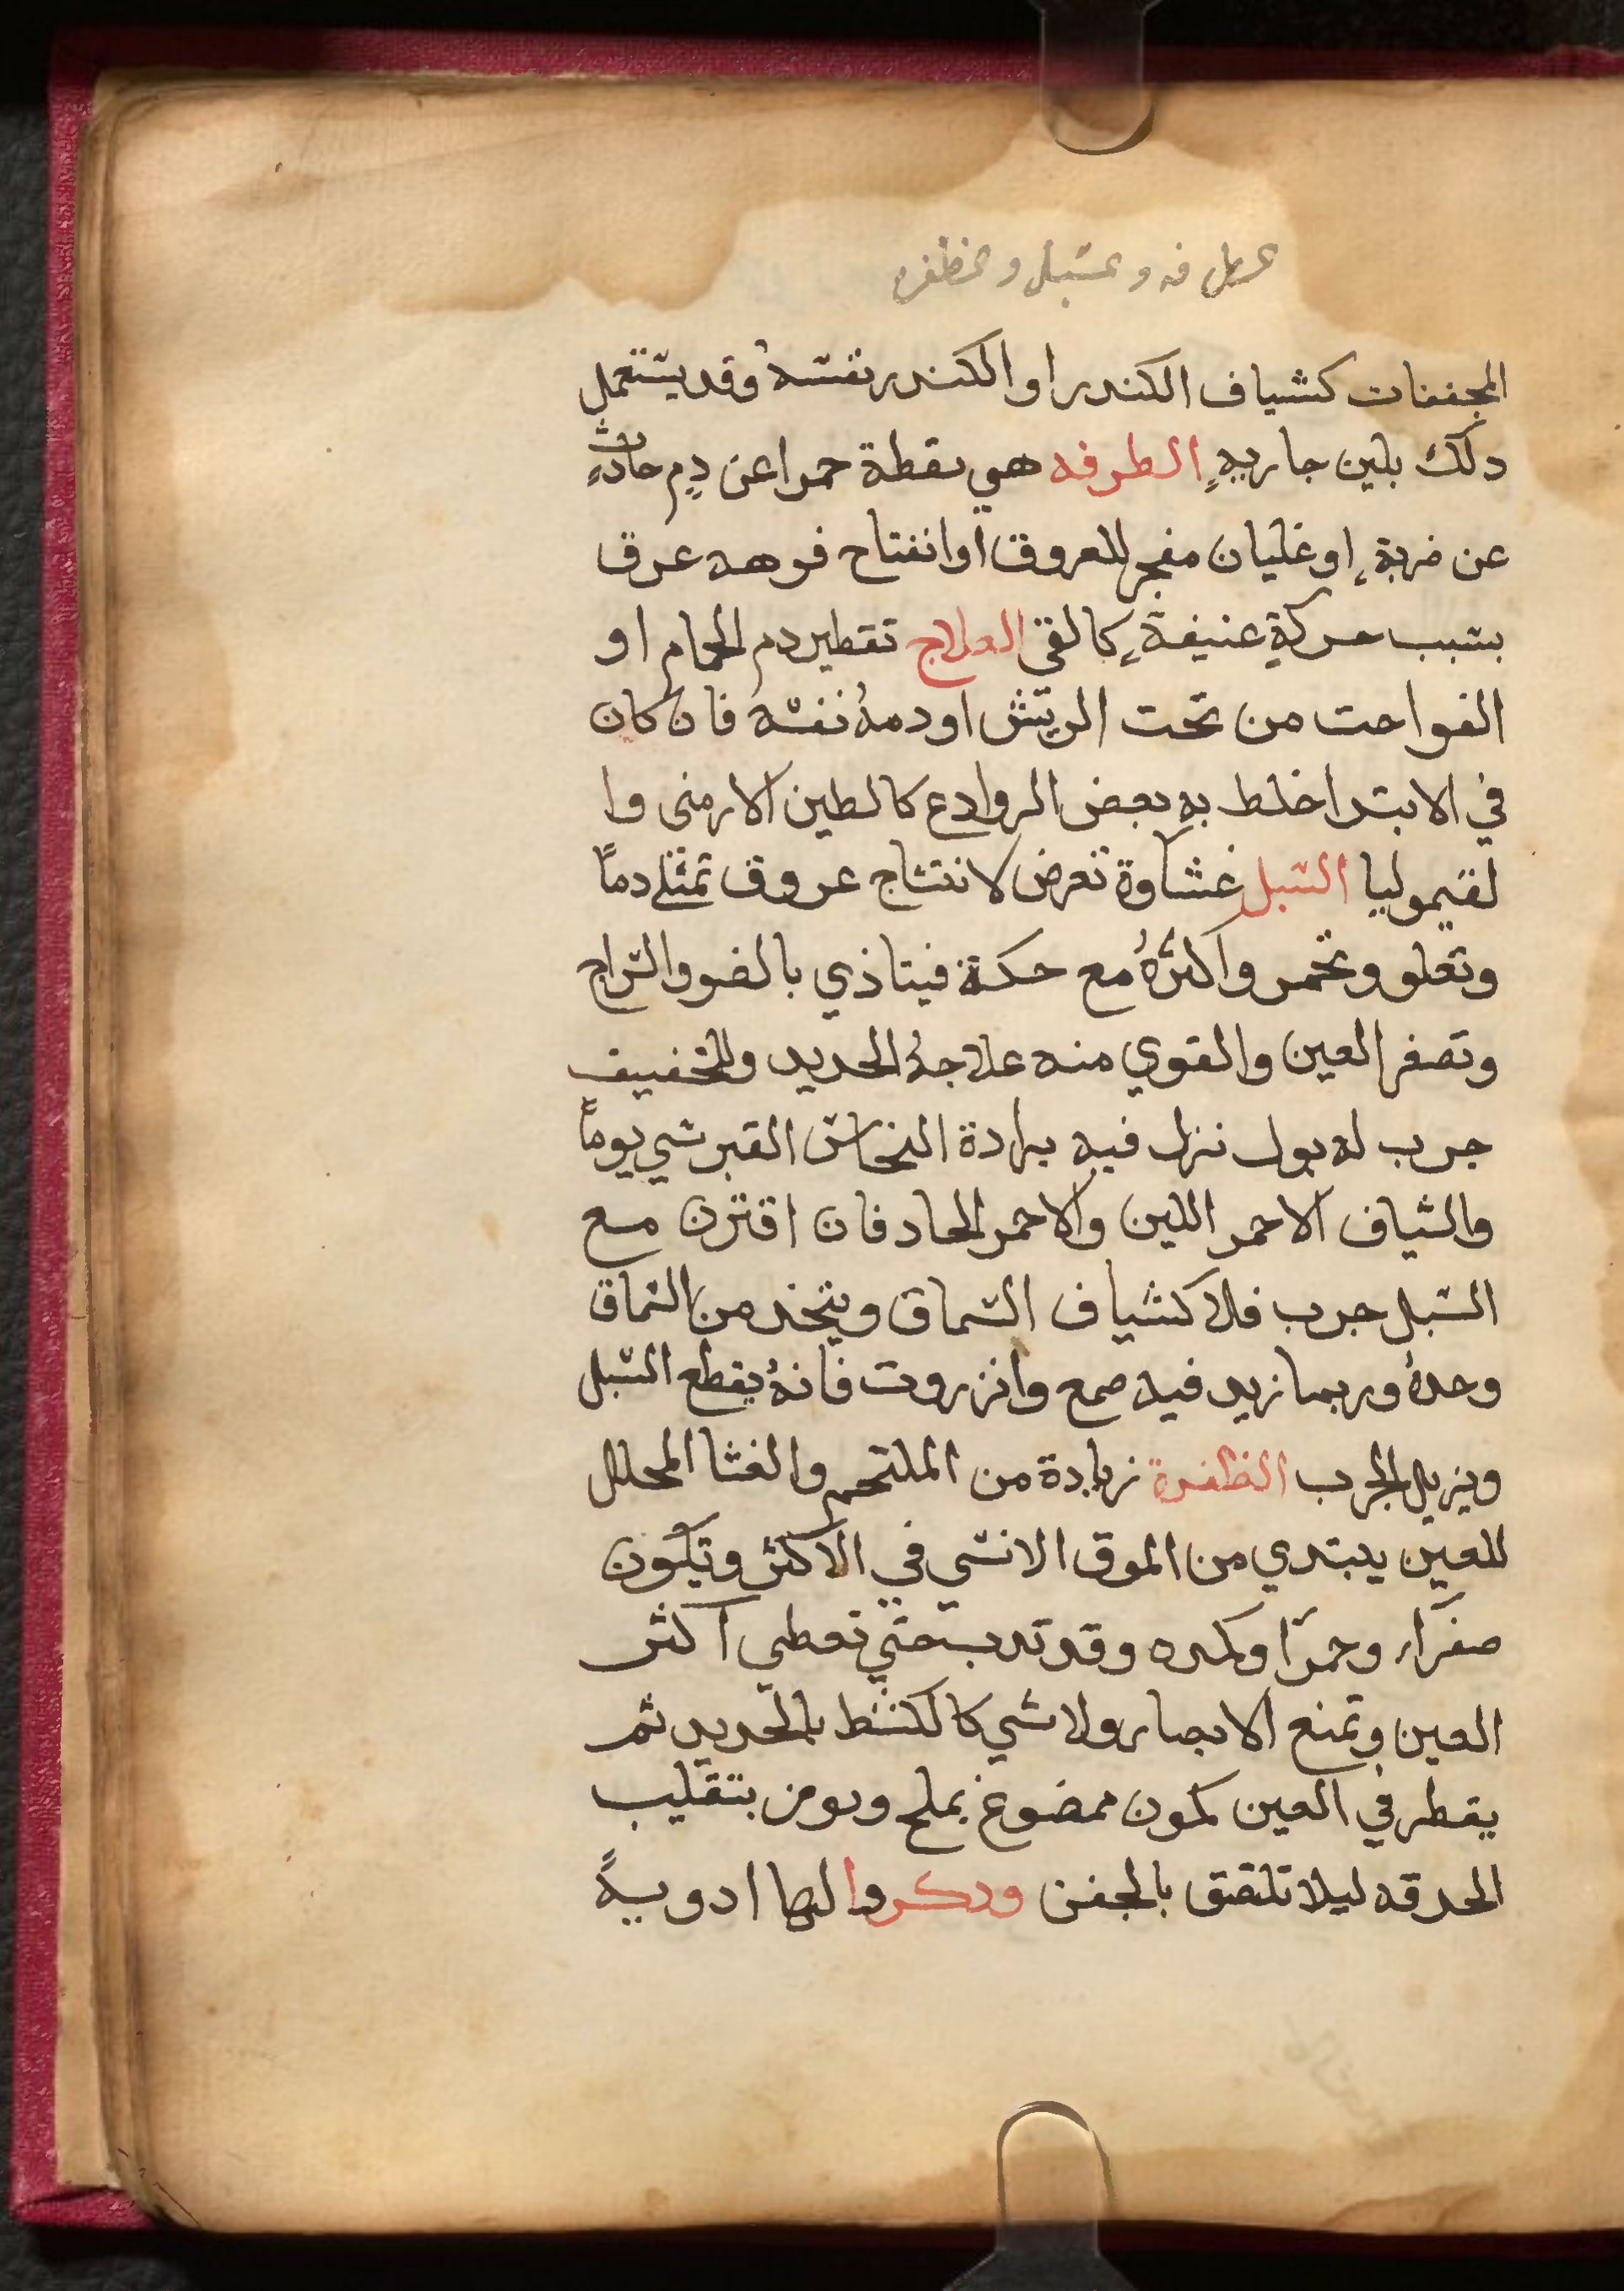 المجففات كشياف الكندر او الكندر نفسهُ وقد يستعمل
دلك بلبن جاريهٍ الطرفه هي نقطة حمرا عن دمٍ حادثٍ
عن ضربةٍ او غليان مفجر للعروق او انفتاح فوهه عرق
بسبب حركةٍ عنيفةٍ كالقى العلاج تقطير دم الحمام او
الفواخت من تحت الريش او دمهُ نفسه فان كان
في الابتدا خلط به بعض الروادع كالطين الارمنى وا
لقيموليا السبل غشاوة تعرض لانتساج عروق تمتلى دماً
وتعلو وتحمر واكثرهُ مع حكة فيتاذي بالضو والسراج
وتصغر العين والقوي منه علاجهُ الحديد وللخفيف
جرب له بول نزل فيه برادة النحاس القبرسي يوماً
والشياف الاحمر اللين والاحمر الحاد فان اقترن مع
السبل جرب فلا كشياف السماق ويتخد من السماق
وحدهُ وربما زيد فيه صمع وانزروت فانهُ يقطع السبل
ويزيل الجرب الظفرة زيادة من الملتحم والغشا المحلل
للعين يبتدي من الموق الانسي في الاكثر وتكون
صفرآء وحمرآ وكمده وقد تدب حتي تعطي اكثر
العين وتمنع الابصار ولا شي كالكشط بالحديد ثم
يقطر في العين كمون ممضوغ بملح ويومر بتقليب
الحدقه ليلا تلتصق بالجفن ودكروا لها ادويةً